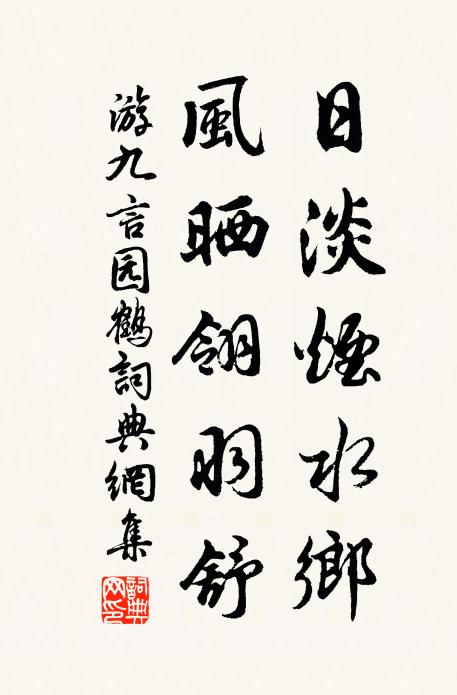 日淡煙水鄉
風晒翎羽舒
游九言园鶴詞典網集
詞典網印